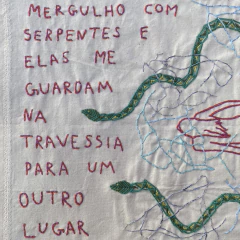 MERGULHO COM
SERPENTES E
ELAS ME
GUARDAM
NA
TRAVESSIA
PARA UM
OUTRO
LUGAR